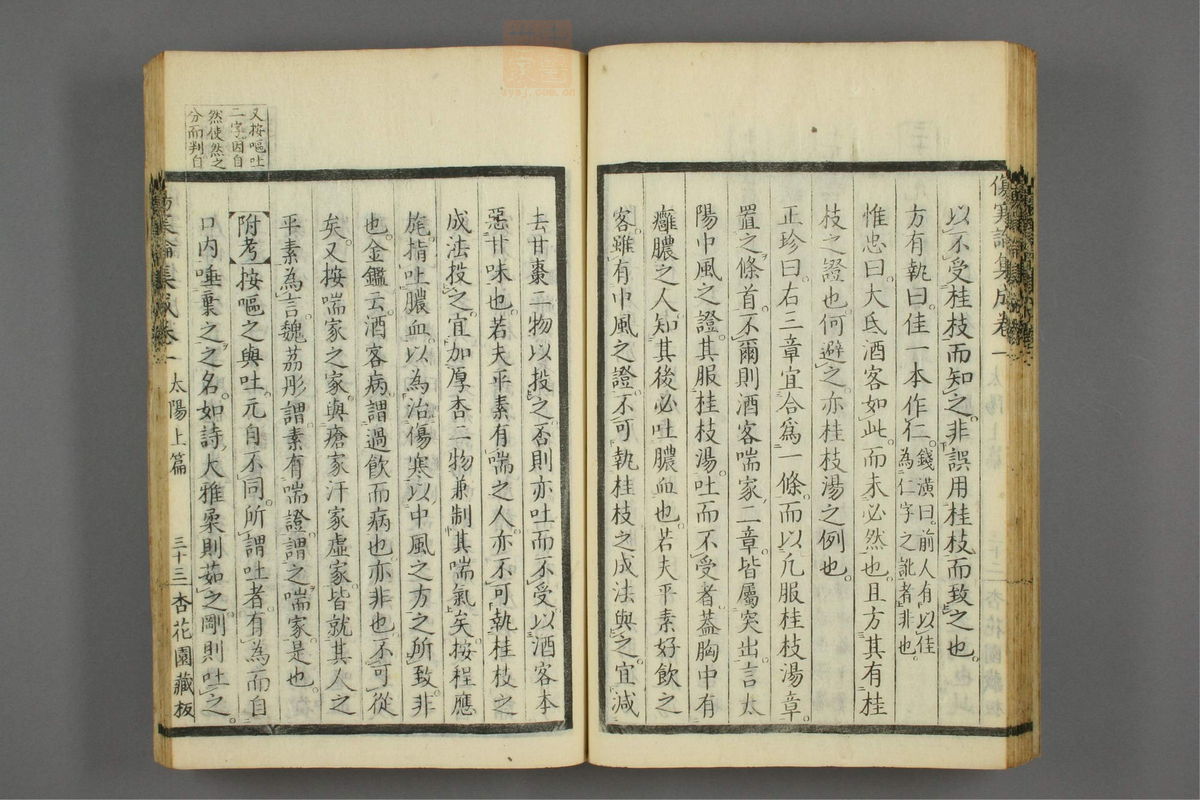 傷寒論集成卷一
以不受桂枝而知之非誤用桂枝而致之也
方有執曰佳一本作仁錢潢曰前人有以佳
為仁字之訛者非也
惟忠曰大氐酒客如此而未必然也且方其有桂
枝之證也何避之亦桂枝湯之例也
正珍曰右三章宜合爲一條而以凡服桂枝湯章
置之條首不爾則酒客喘家二章皆屬突出言太
陽中風之證其服桂枝湯吐而不受者蓋胸中有
癰膿之人知其後必吐膿血也若夫平素好飲之
客雖有中風之證不可執桂枝之成法與之宜減
去甘棗二物以投之否則亦吐而不受以酒客本
惡甘味也若夫平素有喘之人亦不可執桂枝之
成法投之宜加厚杏二物兼制其喘氣矣按程應
旄指吐膿血以為治傷寒以中風之方之所致非
也金鑑云酒客病謂過飲而病也亦非也不可從
矣又按喘家之家與瘡家汗家虛家皆就其人之
平素為言魏荔彤謂素有喘證謂之喘家是也
附考按嘔之與吐元自不同所謂吐者有為而自
口内唾棄之之名如詩大雅柔則茹之剛則吐之
又按嘔吐
二字因自
然使然之
分而判自
傷寒論集成卷一
太陽上篇
三十三
杏花園藏板